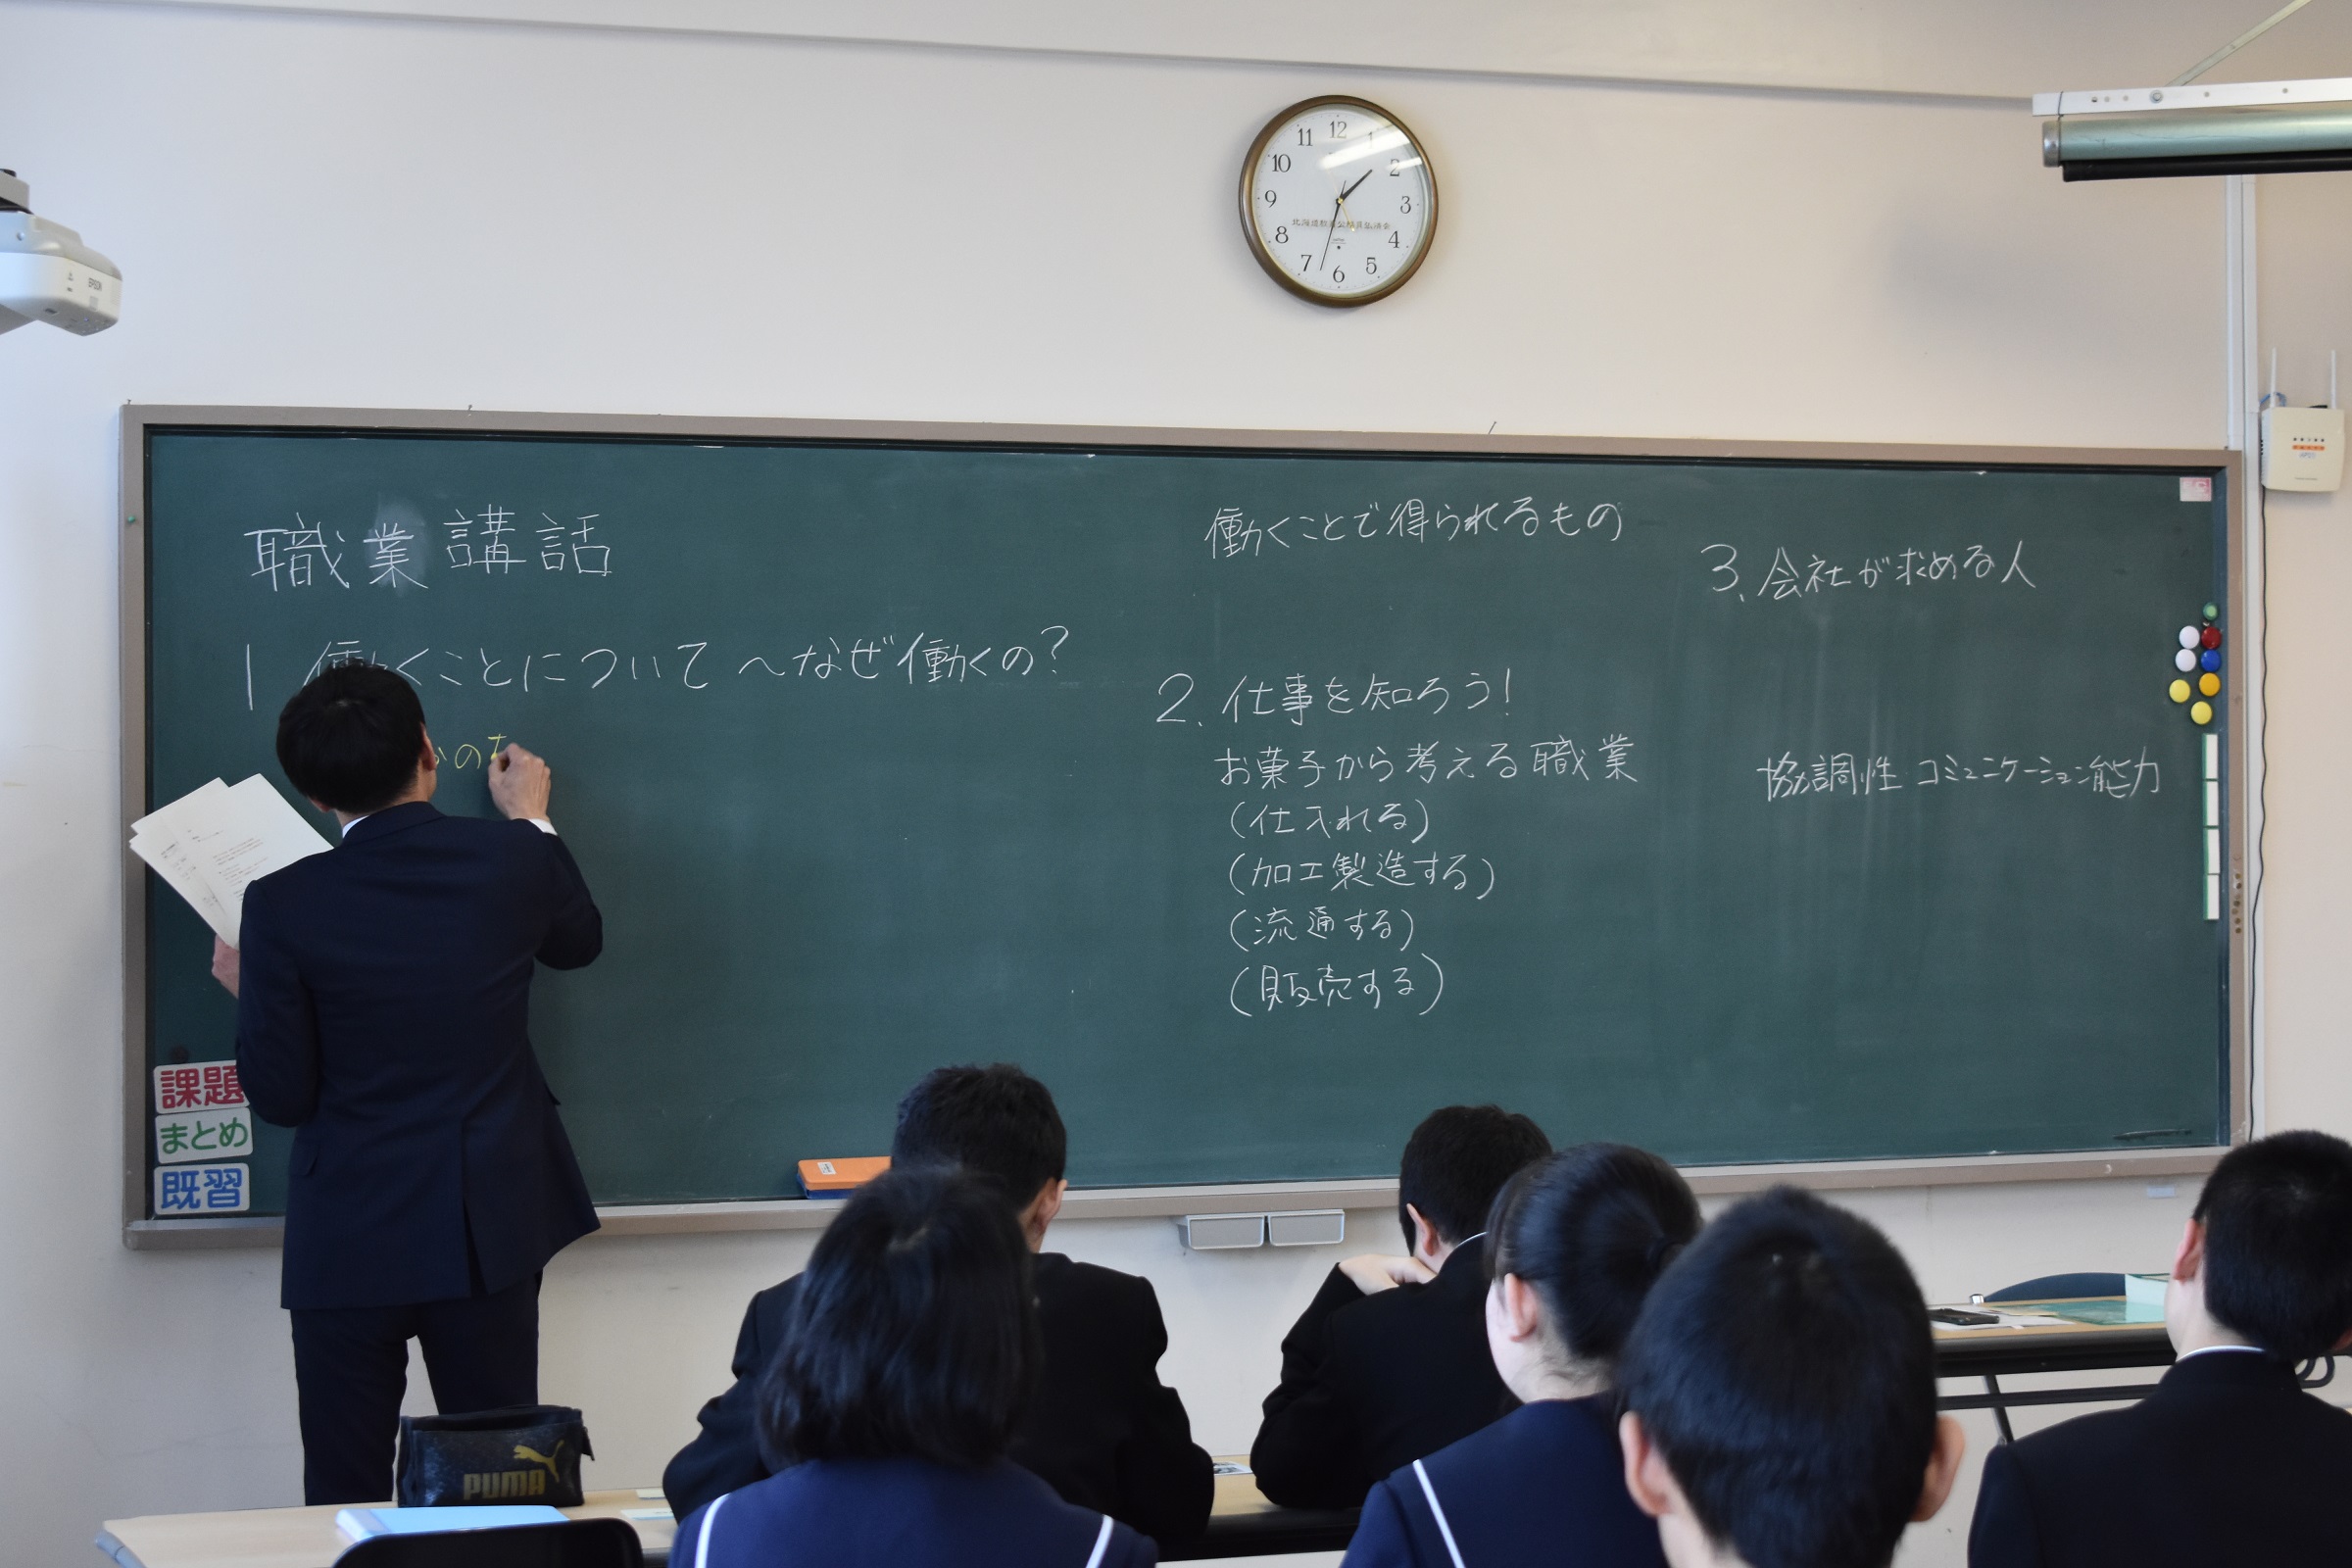 12
11
1
10
2
9
3
8
4
7
5
6
EPSON
職業講話
1 働くことについて ~なぜ働くの?
の
働くことで得られるもの
2. 仕事を知ろう!
お菓子から考える職業
(仕入れる)
(加工製造する)
(流通する)
(販売する)
3. 会社が求める人
協調性 コミュニケーション能力
課題
まとめ
既習
PUMA